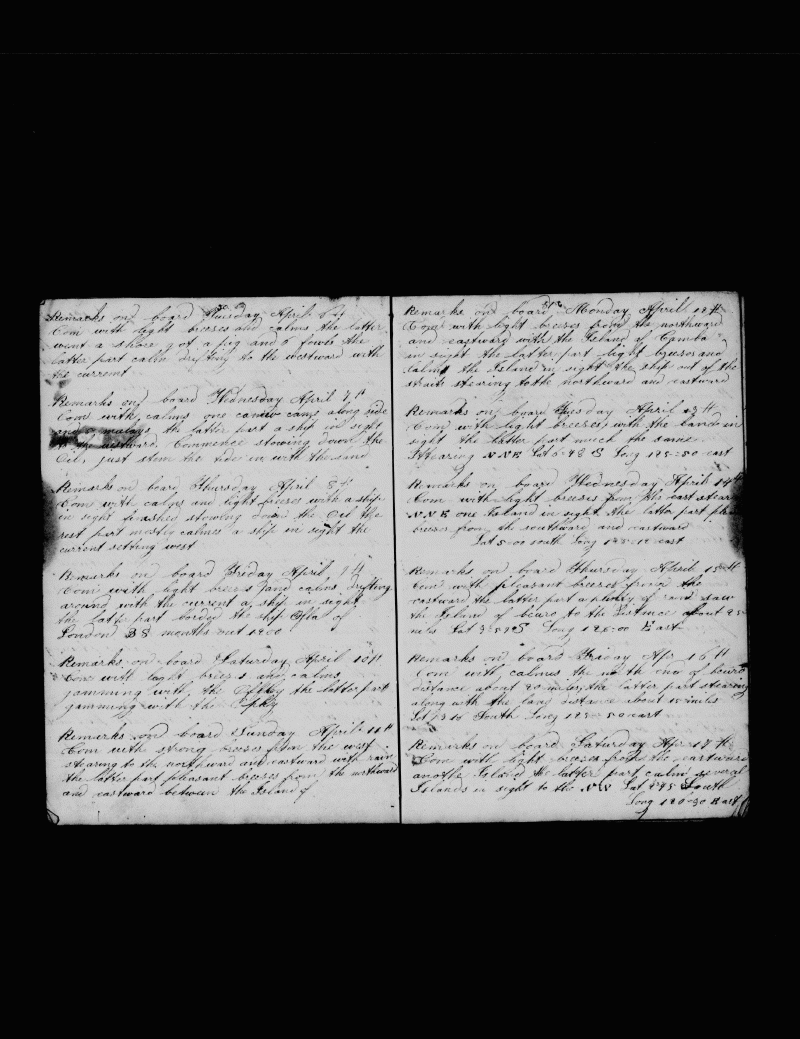 Remarks on board Tuesday April 6th
Com with light breeses and calms the latter
went a shore got a pig and 6 fowls the
latter part calm drifting to the westward with
the current
Remarks on board Wednesday April 7th
Com with calms one canoe came along side
the latter part a ship in sight
to the westward. Commence stowing down the
Oil, just stem the tide in with the land
Remarks on board Thursday April 8th
Com with calms and light breeses with a ship
in sight finished stowing down the Oil the
rest part mostly calmes a ship in sight the
current setting west
Remarks on board Friday April 9th
Com with light breeses and calms drifting
around with the current a ship in sight
the latter part borded the ship of
London 38 months out 1200
Remarks on board Saturday April 10th
Com with light breeses and calms
jamming with the the latter part
jamming with the
Remarks on board Sunday April 11th
Com with strong breeses from the west
stearing to the northward and eastward with rain
the latter part pleasant breeses from the northward
and eastward between the Island of
Remarks on board Monday April 12th
Com with light breeses from the northward
and eastward with the Island of Camba
in sight the latter part light breeses and
calms the Island in sight the ship out of the
straits stearing to the northward and eastward
Remarks on board Tuesday April 13th
Com with light breeses with the land in
sight the latter part much the same
Stearing NNE Lat 6-48 S Long 125-50 east
Remarks on board Wednesday April 14th
Com with light breeses from the east stear
NNE one Island in sight the latter part
breeses from the southward and eastward
Lat 5-00 south Long 125-12 east
Remarks on board Thursday April 15th
Com with pleasant breeses from the
eastward the latter part a plenty of rain saw
the Island of bouro to the distance about 25
mils Lat 3-59 S Long 126-00 East
Remarks on board Friday Apr 16th
Com with calmes the north end of bouro
distance about 20 miles the latter part stearing
along with the land distance about 15 miles
Lat South Long 125-50 east
Remarks on board Saturday Apr 17th
Com with light breeses from the eastward
anothe Island the latter part calm several
Islands in sight to the NW Lat South
Long East